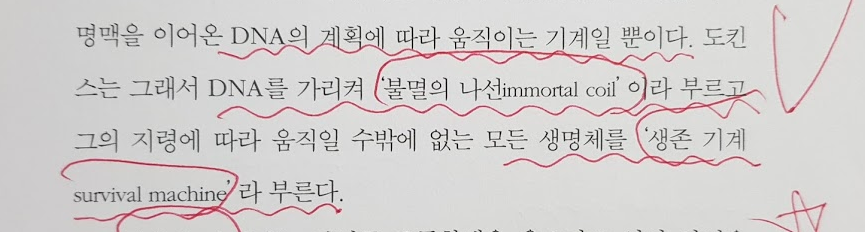 명맥을 이어온 DNA의 계획에 따라 움직이는 기계일 뿐이다. 도킨
스는 그래서 DNA를 가리켜 ‘불멸의 나선immortal coil’이라 부르고
그의 지령에 따라 움직일 수밖에 없는 모든 생명체를 ‘생존 기계
survival machine’라 부른다.